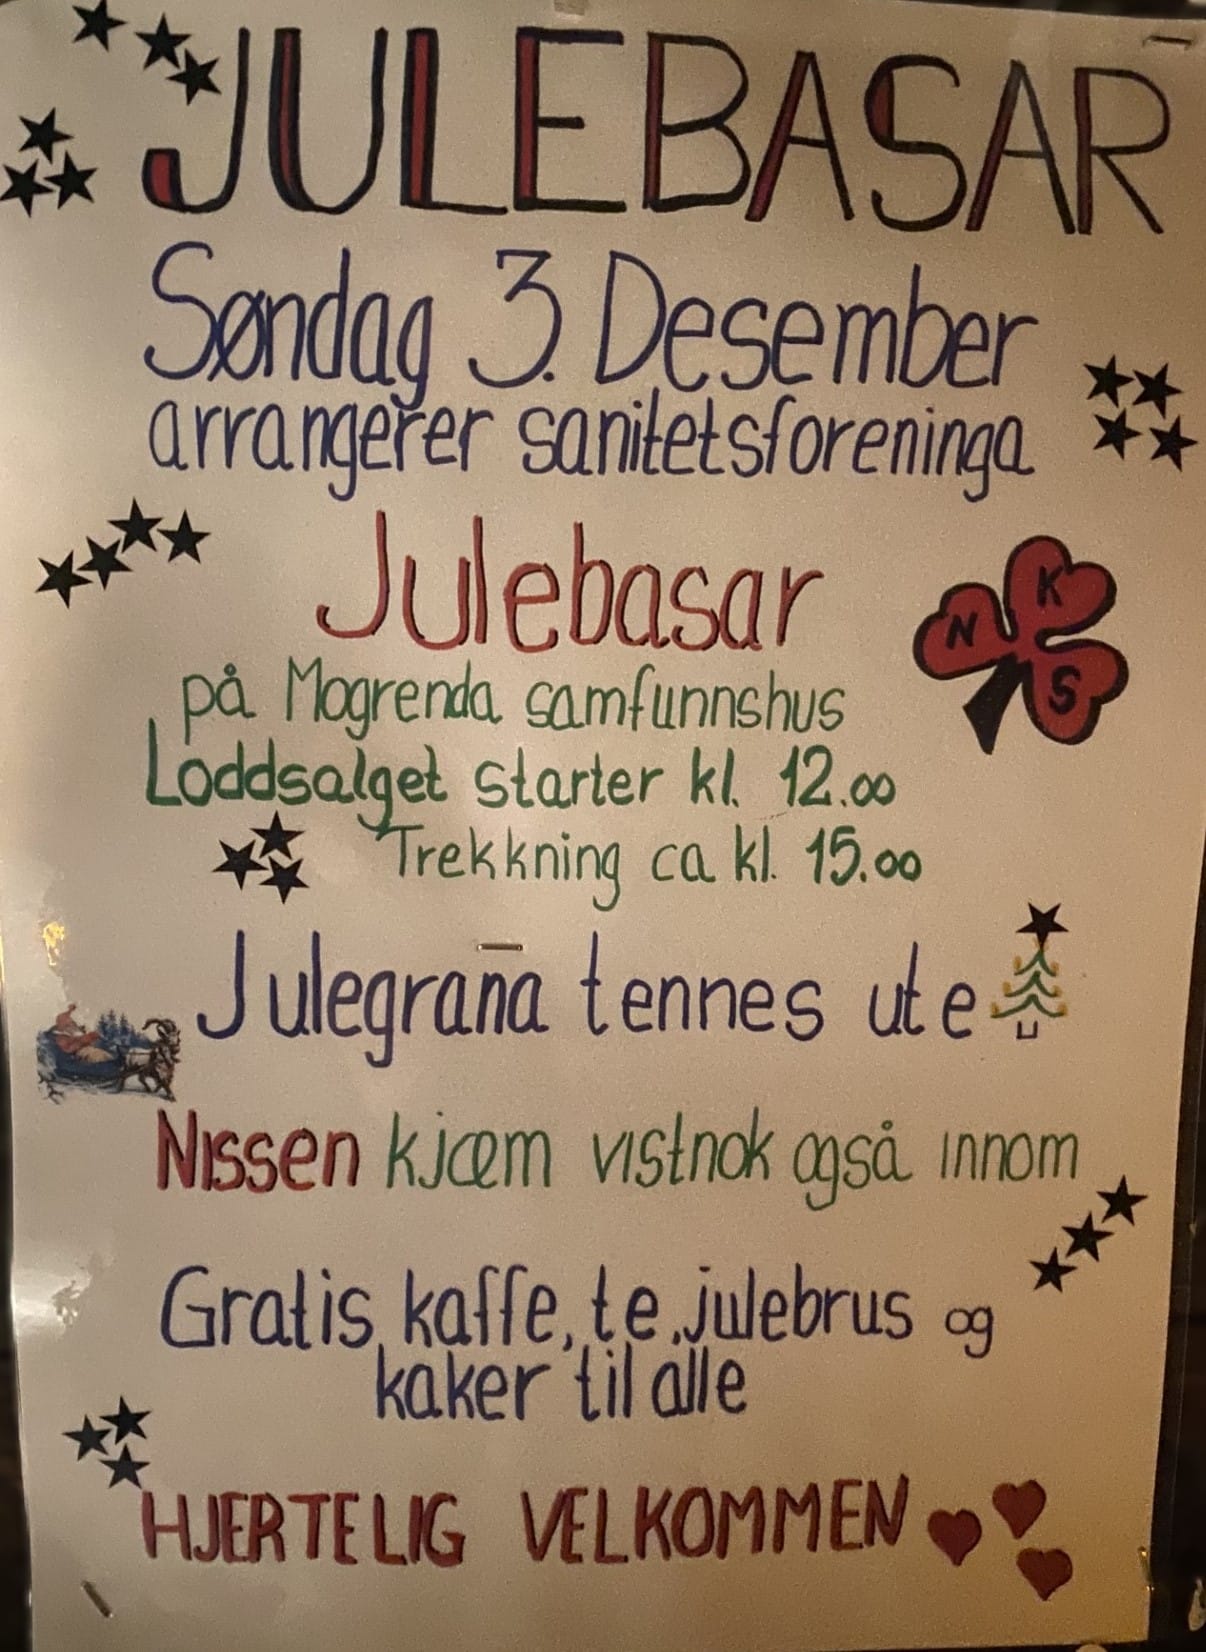 JULEBASAR
Søndag 3. Desember
arrangerer sanitetsforeninga
Julebasar
N K S
på Mogrenda samfunnshus
Loddsalget starter kl. 12.00
Trekkning ca kl. 15.00
Julegrana tennes ute
Nissen kjæm vistnok også innom
Gratis kaffe, te, julebrus og
kaker til alle
HJERTELIG VELKOMMEN